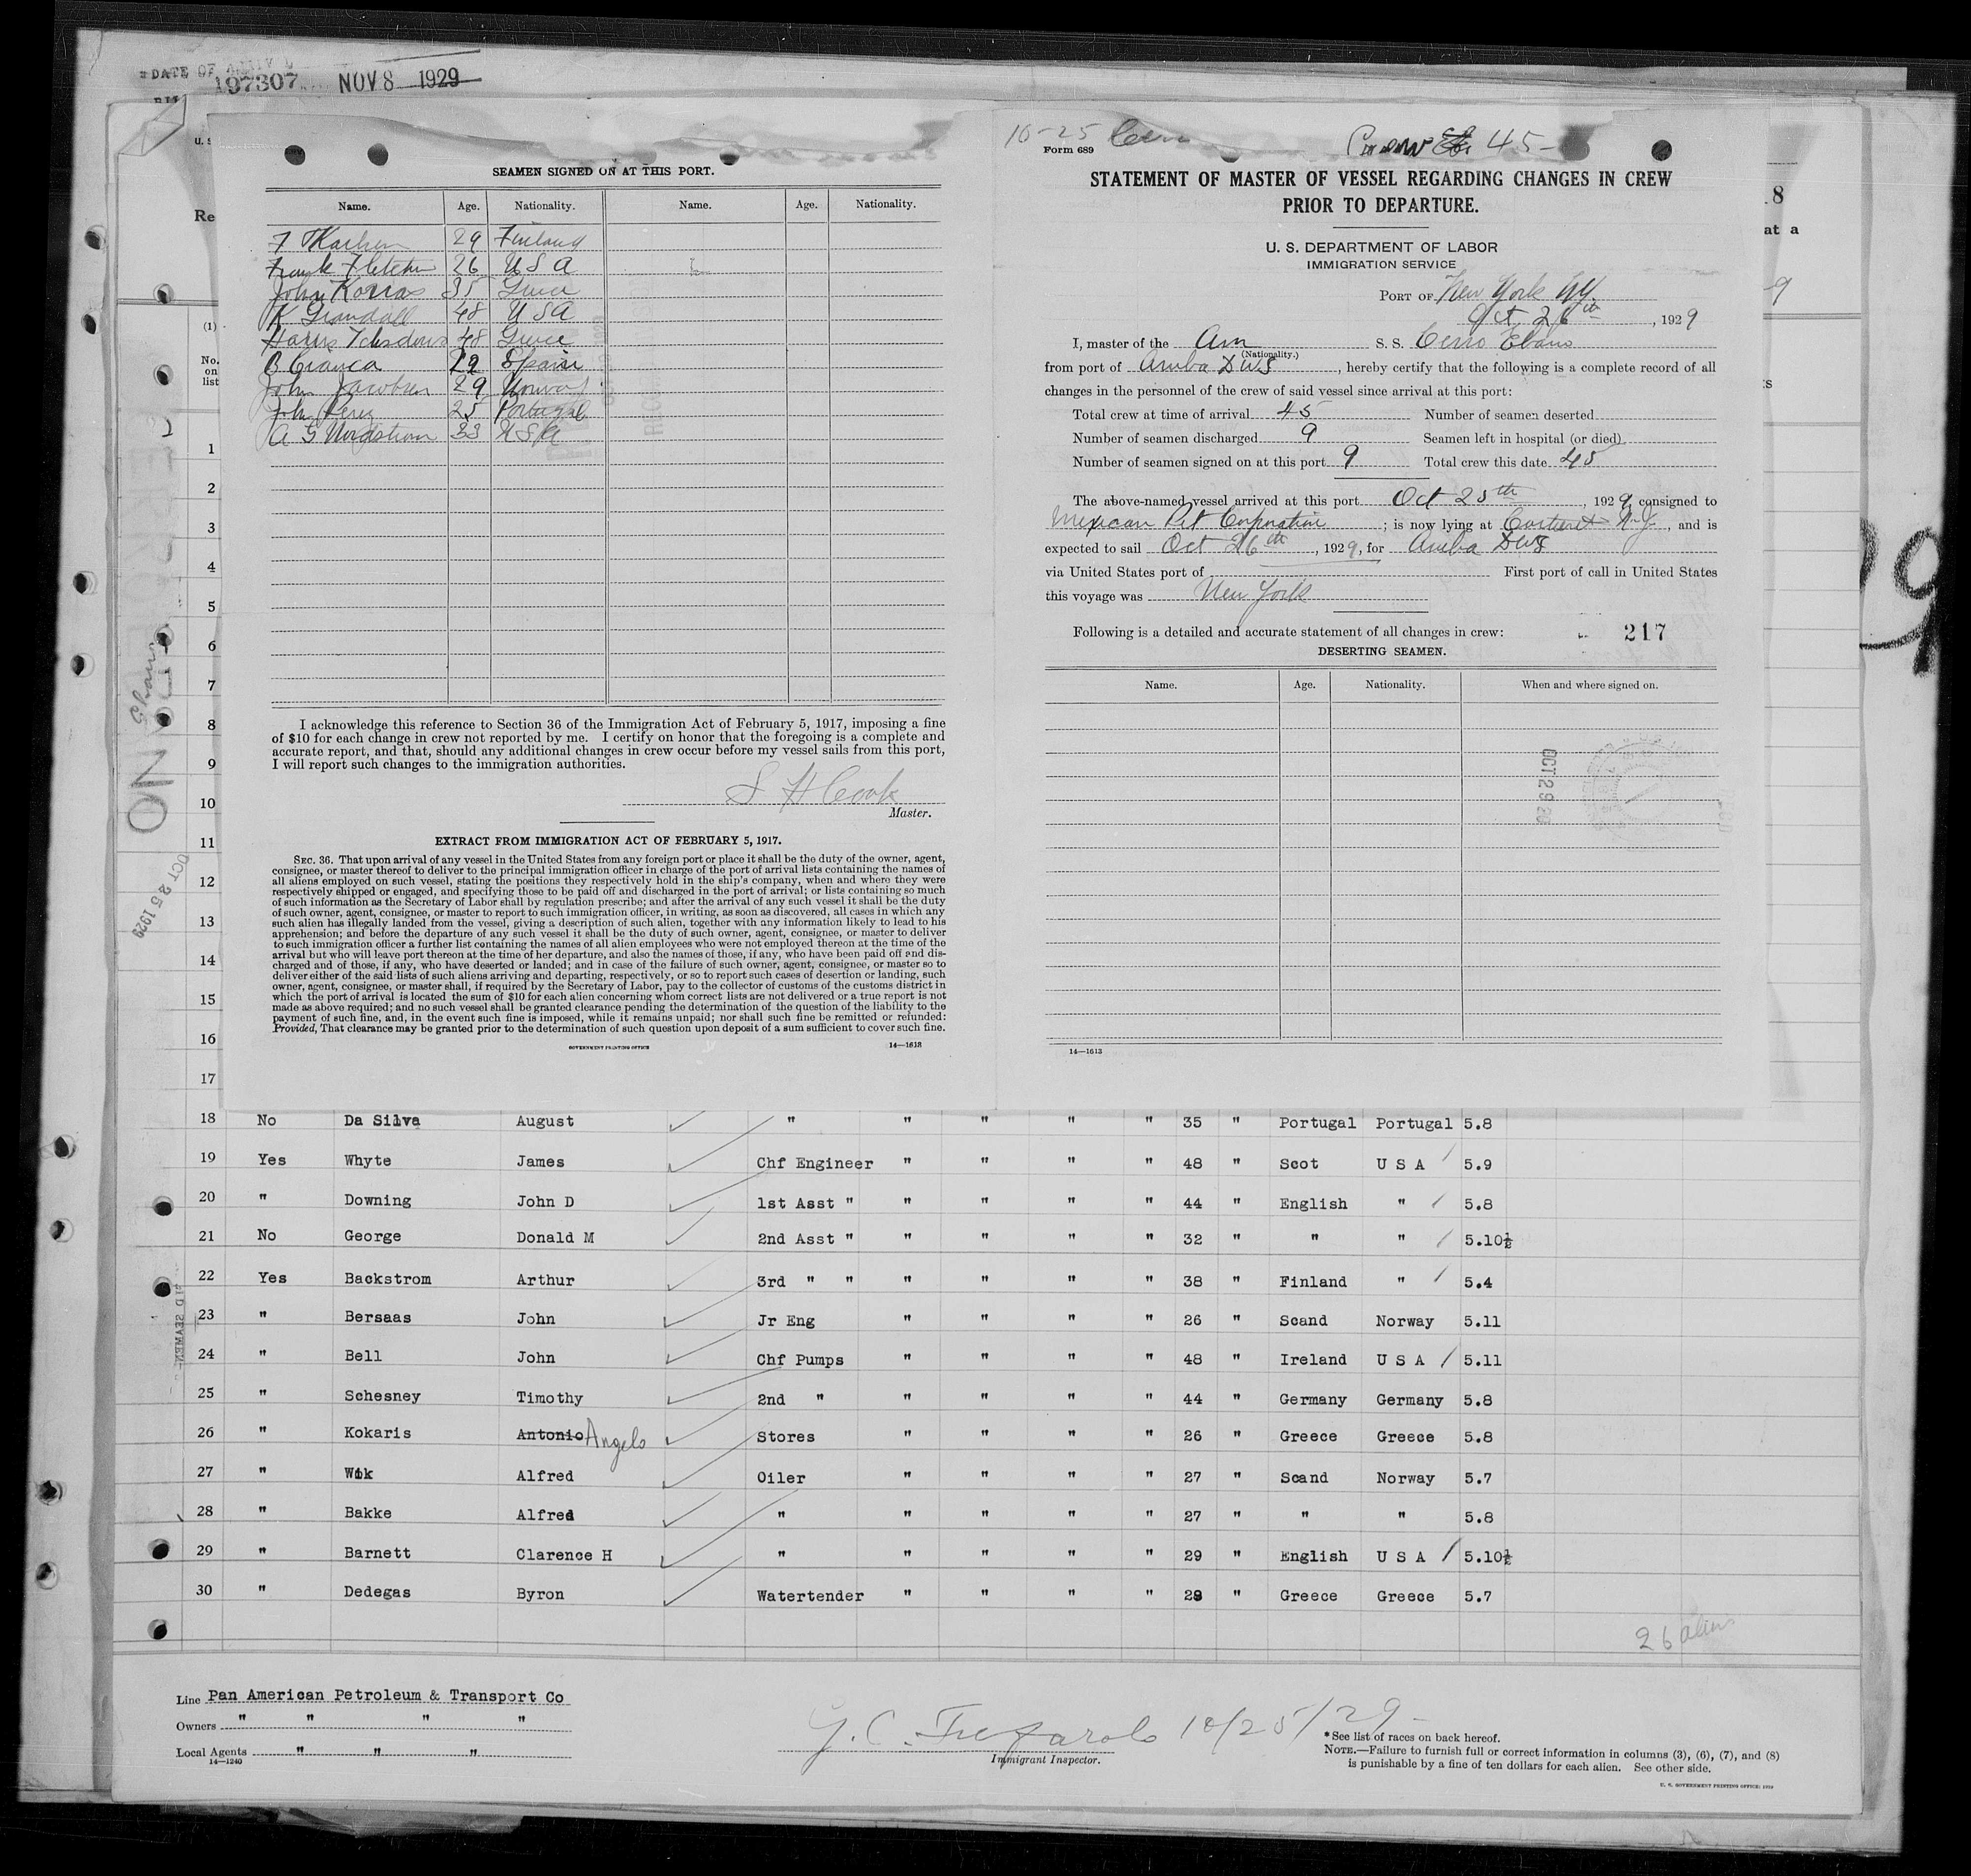 DATE OF
197307 NOV 8 1929
SEAMEN SIGNED ON AT THIS PORT.
Name. Age. Nationality. Name. Age. Nationality.
29 Finland
Frank Fletcher 26 U S A
John Korras 35 Greece
K Grandall 48 U S A
Harris 48 Greece
29 Spain
John Jacobsen 29 Norway
John Perez 25 Portugal
A G Nordstrom 33 U S A
I acknowledge this reference to Section 36 of the Immigration Act of February 5, 1917, imposing a fine
of $10 for each change in crew not reported by me. I certify on honor that the foregoing is a complete and
accurate report, and that, should any additional changes in crew occur before my vessel sails from this port,
I will report such changes to the immigration authorities.
S H Cook
Master.
EXTRACT FROM IMMIGRATION ACT OF FEBRUARY 5, 1917.
SEC. 36. That upon arrival of any vessel in the United States from any foreign port or place it shall be the duty of the owner, agent,
consignee, or master thereof to deliver to the principal immigration officer in charge of the port of arrival lists containing the names of
all aliens employed on such vessel, stating the positions they respectively hold in the ship's company, when and where they were
respectively shipped or engaged, and specifying those to be paid off and discharged in the port of arrival; or lists containing so much
of such information as the Secretary of Labor shall by regulation prescribe; and after the arrival of any such vessel it shall be the duty
of such owner, agent, consignee, or master to report to such immigration officer, in writing, as soon as discovered, all cases in which any
such alien has illegally landed from the vessel, giving a description of such alien, together with any information likely to lead to his
apprehension; and before the departure of any such vessel it shall be the duty of such owner, agent, consignee, or master to deliver
to such immigration officer a further list containing the names of all alien employees who were not employed thereon at the time of the
arrival but who will leave port thereon at the time of her departure, and also the names of those, if any, who have been paid off and dis-
charged and of those, if any, who have deserted or landed; and in case of the failure of such owner, agent, consignee, or master so to
deliver either of the said lists of such aliens arriving and departing, respectively, or so to report such cases of desertion or landing, such
owner, agent, consignee, or master shall, if required by the Secretary of Labor, pay to the collector of customs of the customs district in
which the port of arrival is located the sum of $10 for each alien concerning whom correct lists are not delivered or a true report is not
made as above required; and no such vessel shall be granted clearance pending the determination of the question of the liability to the
payment of such fine, and, in the event such fine is imposed, while it remains unpaid; nor shall such fine be remitted or refunded:
Provided, That clearance may be granted prior to the determination of such question upon deposit of a sum sufficient to cover such fine.
GOVERNMENT PRINTING OFFICE 14—1613
10-25
Form 689
Crew 45-
STATEMENT OF MASTER OF VESSEL REGARDING CHANGES IN CREW
PRIOR TO DEPARTURE.
U. S. DEPARTMENT OF LABOR
IMMIGRATION SERVICE
PORT OF New York NY.
Oct 26th, 1929
I, master of the Am S. S. Cerro Ebano
(Nationality.)
from port of Aruba DWI, hereby certify that the following is a complete record of all
changes in the personnel of the crew of said vessel since arrival at this port:
Total crew at time of arrival 45 Number of seamen deserted
Number of seamen discharged 9 Seamen left in hospital (or died)
Number of seamen signed on at this port 9 Total crew this date 45
The above-named vessel arrived at this port Oct 25th, 1929, consigned to
Mexican Pet Corporation; is now lying at Carteret N.J., and is
expected to sail Oct 26th, 1929, for Aruba DWI
via United States port of First port of call in United States
this voyage was New York
Following is a detailed and accurate statement of all changes in crew: 217
DESERTING SEAMEN.
Name. Age. Nationality. When and where signed on.
OCT 29
14—1613
OCT 25 1929
(1)
No.
on
list
1
2
3
4
5
6
7
8
9
10
11
12
13
14
15
16
17
18 No Da Silva August " " " " " 35 " Portugal Portugal 5.8
19 Yes Whyte James Chf Engineer " " " " 48 " Scot U S A 5.9
20 " Downing John D 1st Asst " " " " " 44 " English " 5.8
21 No George Donald M 2nd Asst " " " " " 32 " " " 5.10½
22 Yes Backstrom Arthur 3rd " " " " " " 38 " Finland " 5.4
23 " Bersaas John Jr Eng " " " " 26 " Scand Norway 5.11
24 " Bell John Chf Pumps " " " " 48 " Ireland U S A 5.11
25 " Schesney Timothy 2nd " " " " " 44 " Germany Germany 5.8
26 " Kokaris Antonio Angelo Stores " " " " 26 " Greece Greece 5.8
27 " Wik Alfred Oiler " " " " 27 " Scand Norway 5.7
28 " Bakke Alfred " " " " " 27 " " " 5.8
29 " Barnett Clarence H " " " " " 29 " English U S A 5.10½
30 " Dedegas Byron Watertender " " " " 28 " Greece Greece 5.7
26 aliens
Line Pan American Petroleum & Transport Co
Owners " " " "
Local Agents " " "
14—1240
10/25/29
Immigrant Inspector.
*See list of races on back hereof.
NOTE.—Failure to furnish full or correct information in columns (3), (6), (7), and (8)
is punishable by a fine of ten dollars for each alien. See other side.
U. S. GOVERNMENT PRINTING OFFICE: 1929